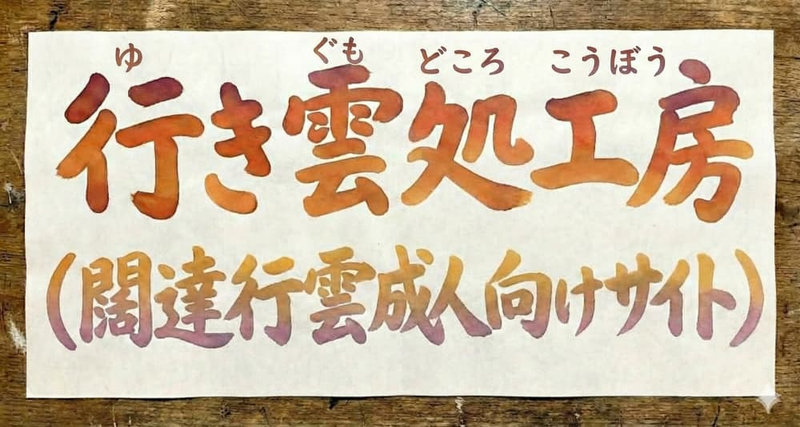 ゆ ぐも どころ こうぼう
行き雲処工房
(闊達行雲成人向けサイト)